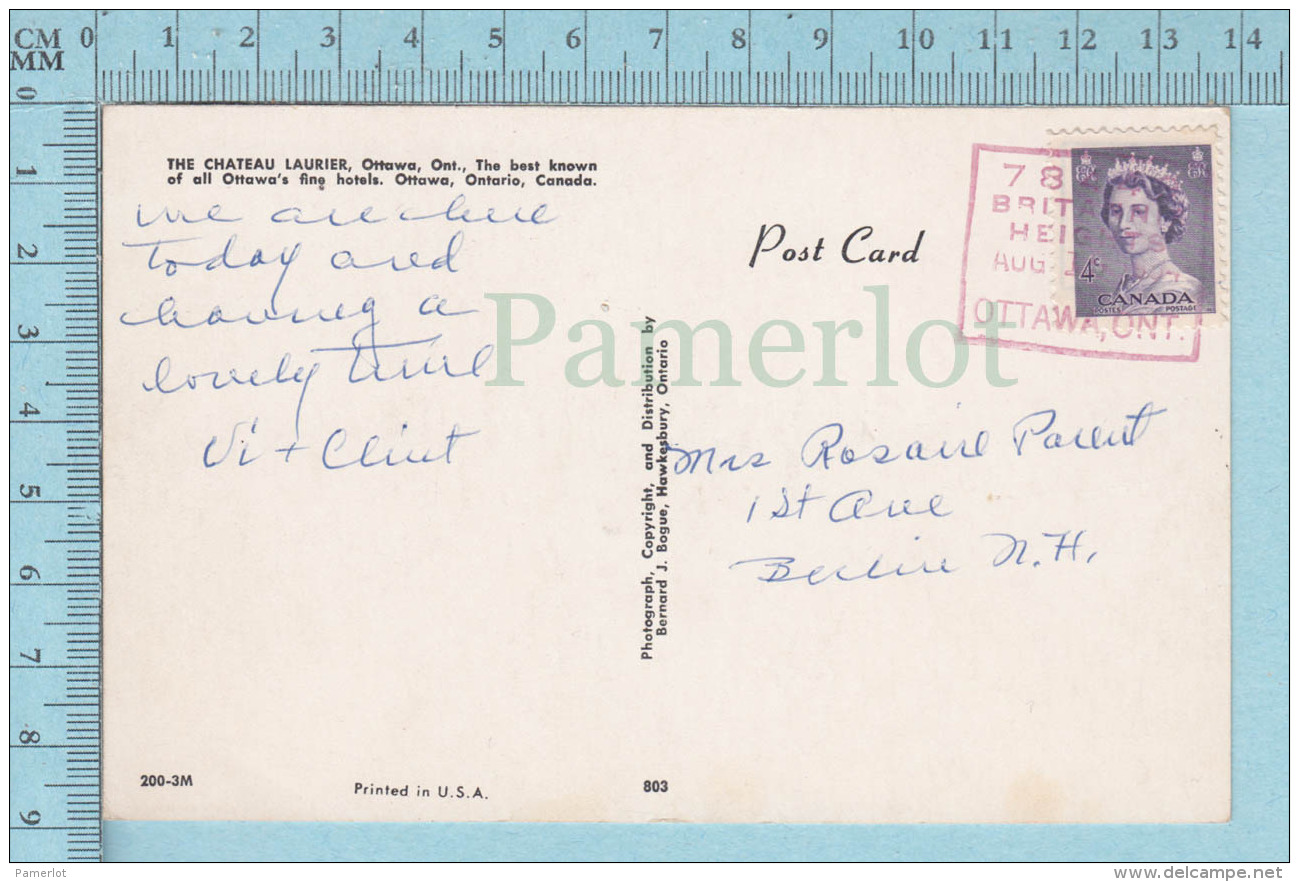 CM 0 1 2 3 4 5 6 7 8 9 10 11 12 13 14
MM
0
1
2
3
4
5
6
7
8
9
THE CHATEAU LAURIER, Ottawa, Ont., The best known
of all Ottawa's fine hotels. Ottawa, Ontario, Canada.
we are here
today and
having a
lovely time
Vi + Clint
200-3M
Printed in U.S.A.
803
Photograph, Copyright, and Distribution by
Bernard J. Bogue, Hawkesbury, Ontario
Post Card
78
BRITA
HEIGHTS
AUG
OTTAWA, ONT.
4c
CANADA
POSTES POSTAGE
Mrs Parent
1st Ave
Berlin N.H.
Pamerlot
Pamerlot
www.delcampe.net